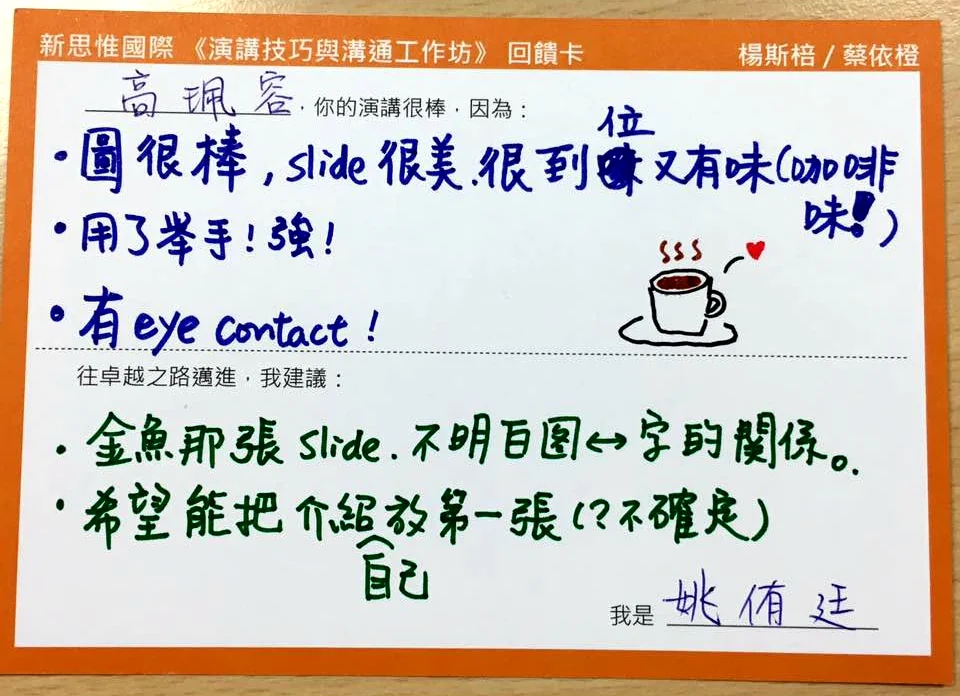 新思惟國際 《演講技巧與溝通工作坊》 回饋卡 楊斯棓 / 蔡依橙
高珮容,你的演講很棒,因為:
• 圖很棒, slide很美.很到位又有味(咖啡味!)
• 用了举手!強!
• 有eye contact!
往卓越之路邁進,我建議:
• 金魚那張slide.不明白图↔字的關係。
• 希望能把介紹自己放第一張(?不確定)
我是 姚侑廷